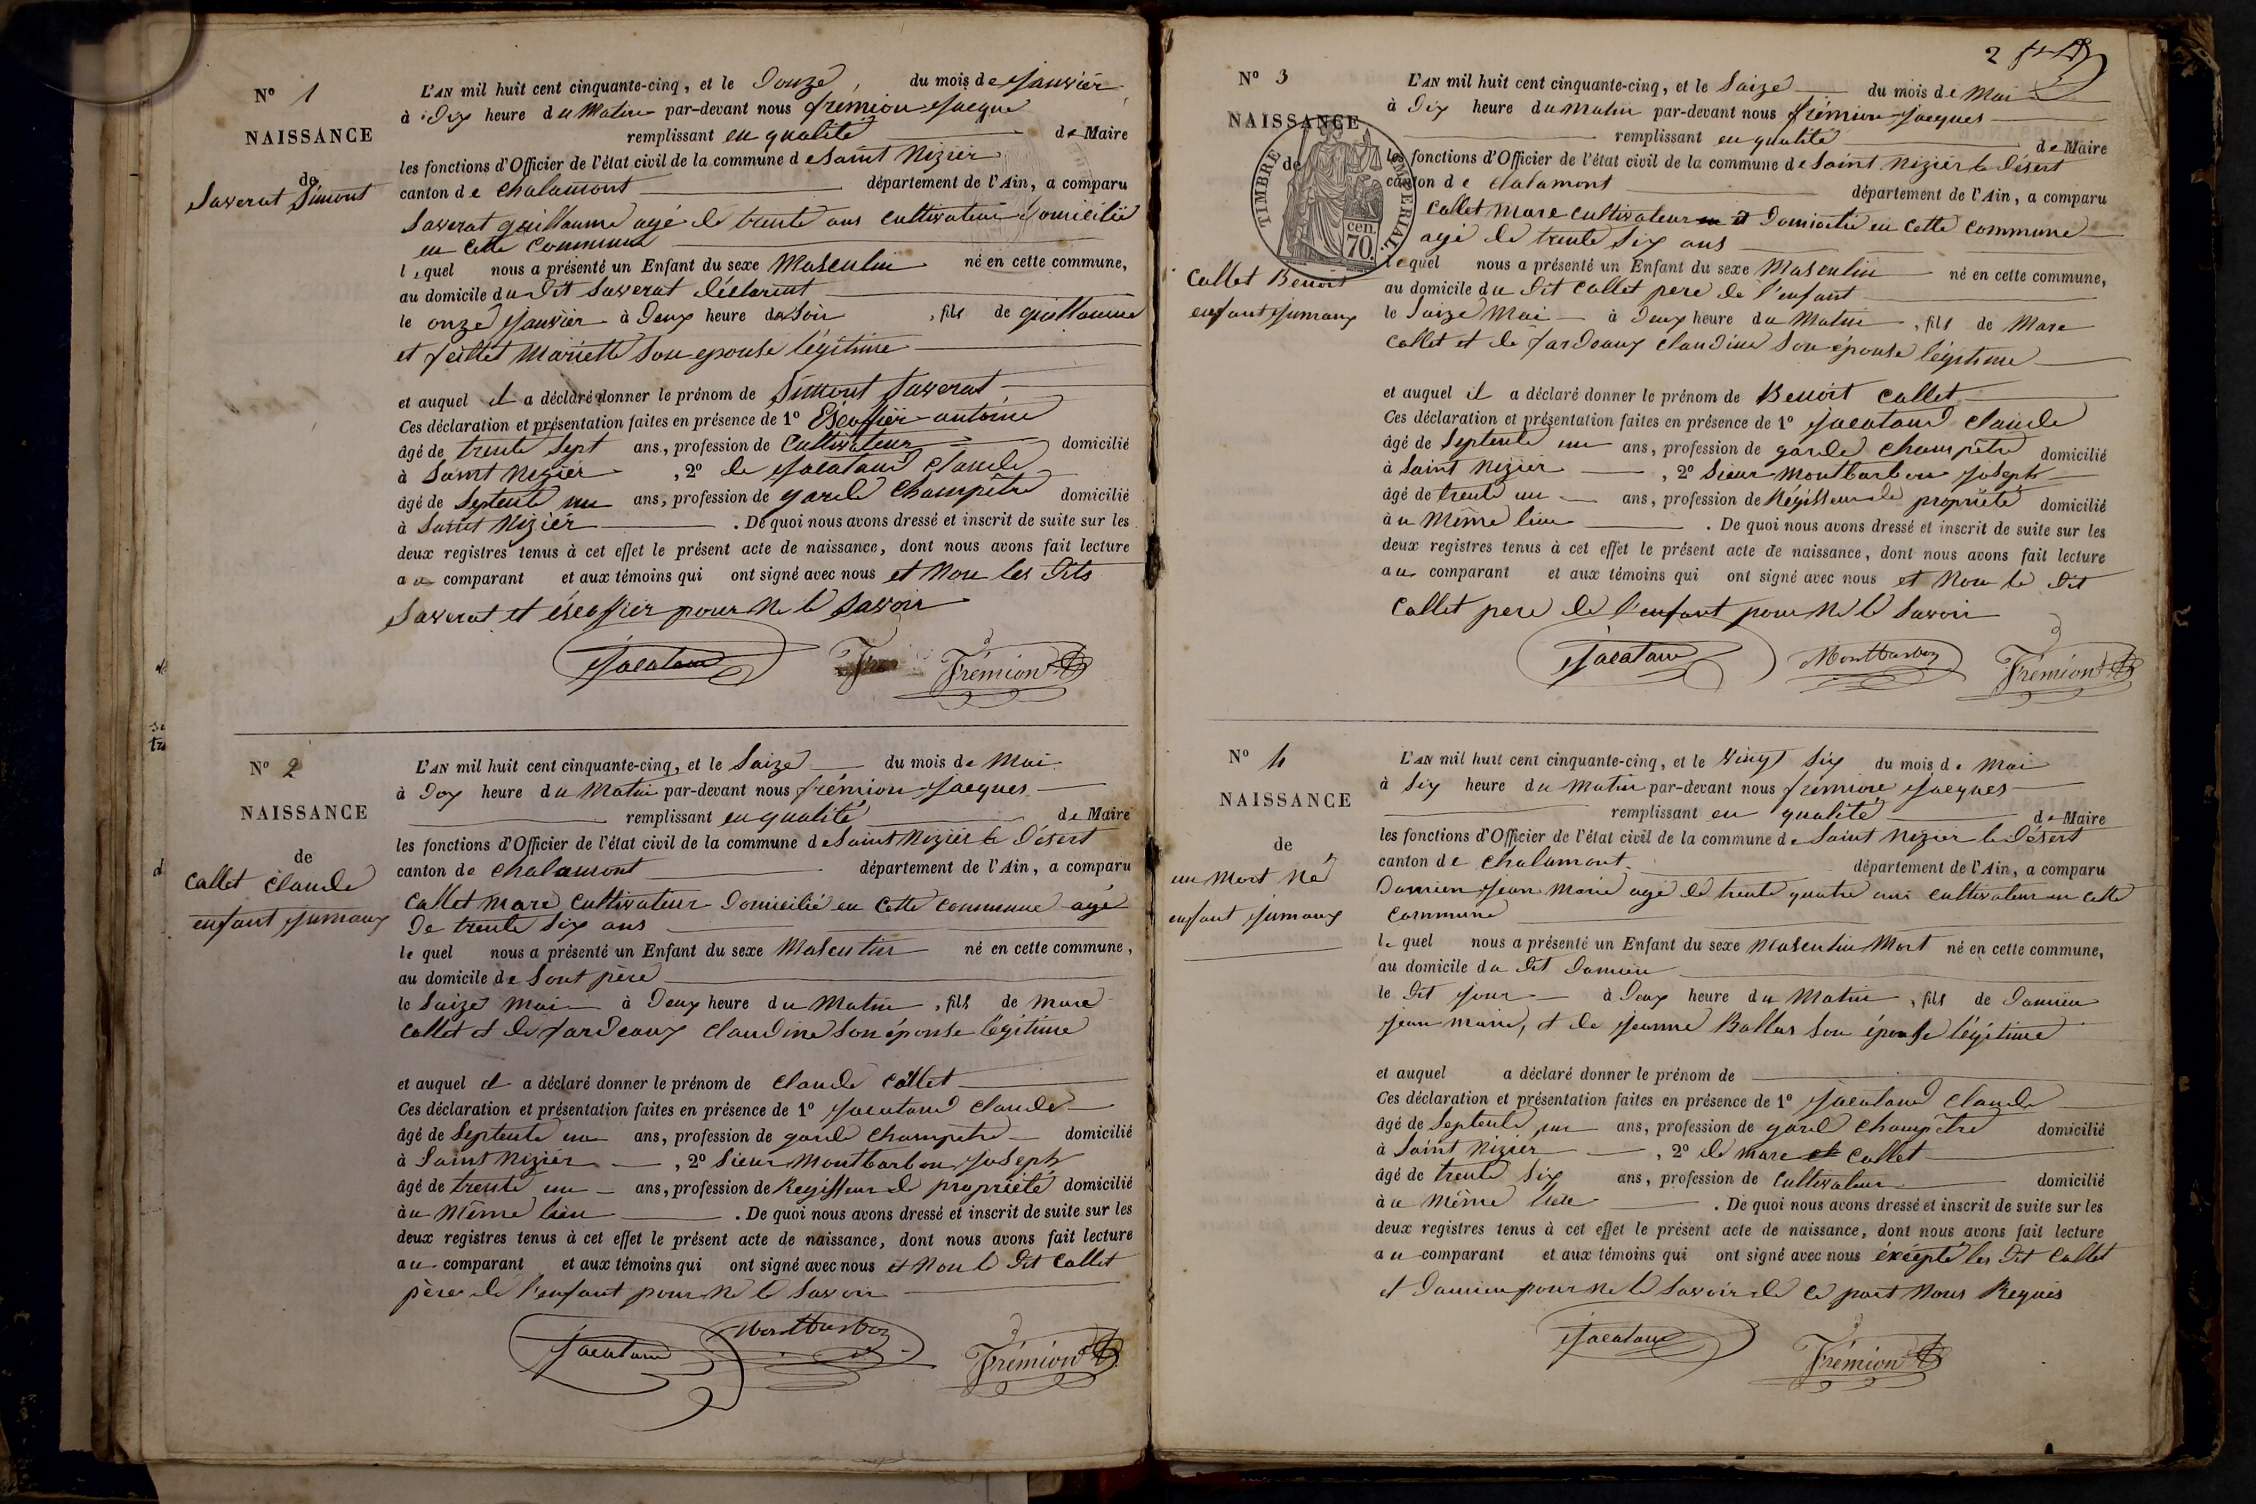 N° 1
NAISSANCE
de
Saverat Simont
L'AN mil huit cent cinquante-cinq, et le Douze du mois de Janvier
à Dix heure du Matin par-devant nous frémion Jacque
remplissant en qualité de Maire
les fonctions d'Officier de l'état civil de la commune de Saint Nizier
canton de Chalamont département de l'Ain, a comparu
Saverat guillaume agé de trente ans cultivateur Domicilié
en cette Commune
lequel nous a présenté un Enfant du sexe Masculin né en cette commune,
au domicile du Dit Saverat Déclarent
le onze Janvier à Deux heure du Soir, fils de guillaume
et feillet Mariette Son epouse légitime
et auquel il a déclaré donner le prénom de Simont Saverat
Ces déclaration et présentation faites en présence de 1° Escoffier antoine
âgé de trente Sept ans, profession de Cultivateur domicilié
à Saint Nizier, 2° de Jacataud Claude
âgé de Septente un ans, profession de garde Champêtre domicilié
à Saint Nizier. De quoi nous avons dressé et inscrit de suite sur les
deux registres tenus à cet effet le présent acte de naissance, dont nous avons fait lecture
au comparant et aux témoins qui ont signé avec nous et Non les Dits
Saverat et éscoffier pour Ne le Savoir
Jacataud Frémion
N° 2
NAISSANCE
de
Callet Claude
enfant Jumaux
L'AN mil huit cent cinquante-cinq, et le Saize du mois de Mai
à Dix heure du Matin par-devant nous frémion Jacques
remplissant en qualité de Maire
les fonctions d'Officier de l'état civil de la commune de Saint Nizier le Désert
canton de Chalamont département de l'Ain, a comparu
Callet Marc Cultivateur Domicilié en Cette Commune agé
De trente Six ans
le quel nous a présenté un Enfant du sexe Masculin né en cette commune,
au domicile de Sont père
le Saize Mai à Deux heure du Matin, fils de Marc
Callet et de fardeaux Claudine Son épouse légitime
et auquel il a déclaré donner le prénom de Claude Callet
Ces déclaration et présentation faites en présence de 1° Jacataud Claude
âgé de Septente un ans, profession de garde Champêtre domicilié
à Saint Nizier, 2° Sieur Montbarbon Joseph
âgé de trente un ans, profession de Regisseur de propriété domicilié
àu Même lieu. De quoi nous avons dressé et inscrit de suite sur les
deux registres tenus à cet effet le présent acte de naissance, dont nous avons fait lecture
au comparant et aux témoins qui ont signé avec nous et Non le Dit Callet
père de l'enfant pour Ne le Savoir
Jacataud Montbarbon Frémion
2
N° 3
NAISSANCE
de
TIMBRE IMPERIAL
cen. 70.
Callet Benoit
enfant Jumaux
L'AN mil huit cent cinquante-cinq, et le Saize du mois de Mai
à Dix heure du Matin par-devant nous frémion Jacques
remplissant en qualité de Maire
les fonctions d'Officier de l'état civil de la commune de Saint Nizier le Désert
canton de Chalamont département de l'Ain, a comparu
Callet Marc Cultivateur Domicilié en Cette Commune
agé de trente Six ans
lequel nous a présenté un Enfant du sexe Masculin né en cette commune,
au domicile du Dit Callet pere de l'enfant
le Saize Mai à Deux heure du Matin, fils de Marc
Callet et de fardeaux Claudine Son épouse légitime
et auquel il a déclaré donner le prénom de Benoit Callet
Ces déclaration et présentation faites en présence de 1° Jacataud Claude
âgé de Septente un ans, profession de garde Champêtre domicilié
à Saint Nizier, 2° Sieur Montbarbon Joseph
âgé de trente un ans, profession de Régisseur de propriété domicilié
àu Même lieu. De quoi nous avons dressé et inscrit de suite sur les
deux registres tenus à cet effet le présent acte de naissance, dont nous avons fait lecture
au comparant et aux témoins qui ont signé avec nous et Non le Dit
Callet pere de l'enfant pour Ne le Savoir
Jacataud Montbarbon Frémion
N° 4
NAISSANCE
de
un Mort Né
enfant Jumaux
L'AN mil huit cent cinquante-cinq, et le Vingt Six du mois de Mai
à Six heure du Matin par-devant nous frémion Jacques
remplissant en qualité de Maire
les fonctions d'Officier de l'état civil de la commune de Saint Nizier le Désert
canton de Chalamont département de l'Ain, a comparu
Damien Jean Marie agé de trente quatre ans cultivateur en cette
Commune
le quel nous a présenté un Enfant du sexe Masculin Mort né en cette commune,
au domicile du Dit Damien
le Dit Jour à Deux heure du Matin, fils de Damien
Jean Marie, et de Jeanne Ballas Son épouse légitime
et auquel a déclaré donner le prénom de
Ces déclaration et présentation faites en présence de 1° Jacataud Claude
âgé de Septente un ans, profession de garde Champêtre domicilié
à Saint Nizier, 2° de Marc Callet
âgé de trente Six ans, profession de Cultivateur domicilié
àu Même lieu. De quoi nous avons dressé et inscrit de suite sur les
deux registres tenus à cet effet le présent acte de naissance, dont nous avons fait lecture
au comparant et aux témoins qui ont signé avec nous éxcépté les Dit Callet
et Damien pour Ne le Savoir de ce part Nous Requis
Jacataud Frémion